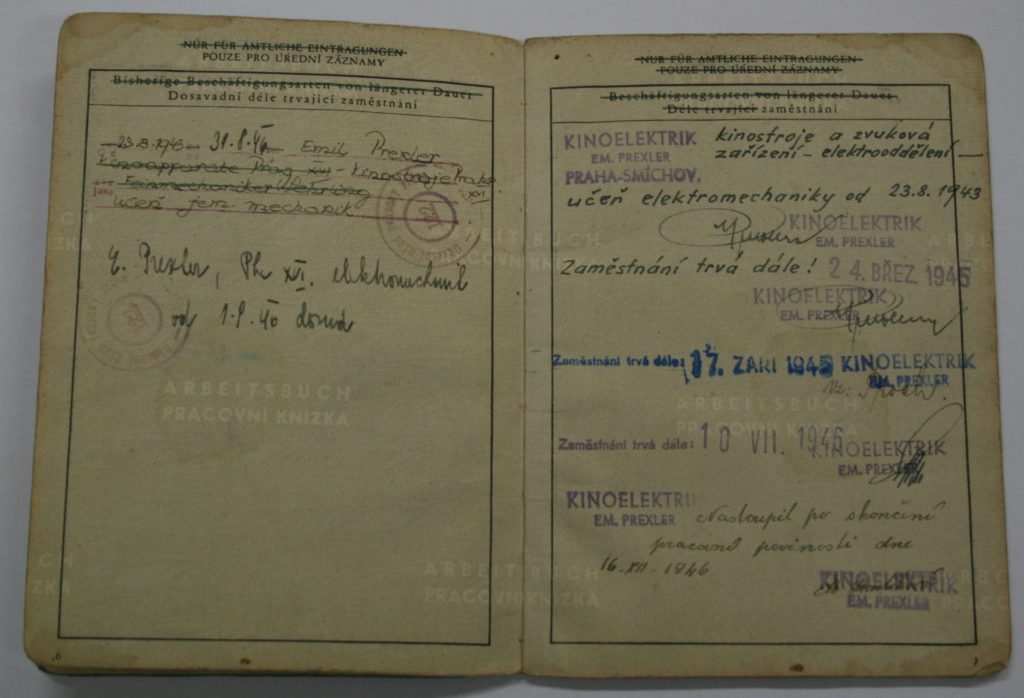 NUR FÜR AMTLICHE EINTRAGUNGEN
POUZE PRO ÚŘEDNÍ ZÁZNAMY
Bisherige Beschäftigungsarten von längerer Dauer
Dosavadní déle trvající zaměstnání
23.8.1943 - 31.8.45 Emil Prexler
Kinoapparate Prag XVI - Kinostroje Praha XVI
jako Feinmechaniker
učeň jem. mechanik
E. Prexler, Pha XVI. elektromechanik
od
ARBEITSBUCH
PRACOVNÍ KNÍŽKA
ARBEITSBUCH
PRACOVNÍ KNÍŽKA
6
NUR FÜR AMTLICHE EINTRAGUNGEN
POUZE PRO ÚŘEDNÍ ZÁZNAMY
Beschäftigungsarten von längerer Dauer
Déle trvající zaměstnání
KINOELEKTRIK
EM. PREXLER
PRAHA-SMÍCHOV,
kinostroje a zvuková
zařízení - elektrooddělení -
učeň elektromechaniky od 23.8.1943
KINOELEKTRIK
EM. PREXLER
Zaměstnání trvá dále! 24. BŘEZ. 1945
KINOELEKTRIK
EM. PREXLER
Zaměstnání trvá dále: 17. ZÁŘÍ 1945 KINOELEKTRIK
EM. PREXLER
ARBEITSBUCH
PRACOVNÍ KNÍŽKA
Zaměstnání trvá dále: 10 VII. 1946 KINOELEKTRIK
EM. PREXLER
KINOELEKTRIK
EM. PREXLER
Nastoupil po skončení
pracovní povinosti dne
16.XII.1946
KINOELEKTRIK
EM. PREXLER